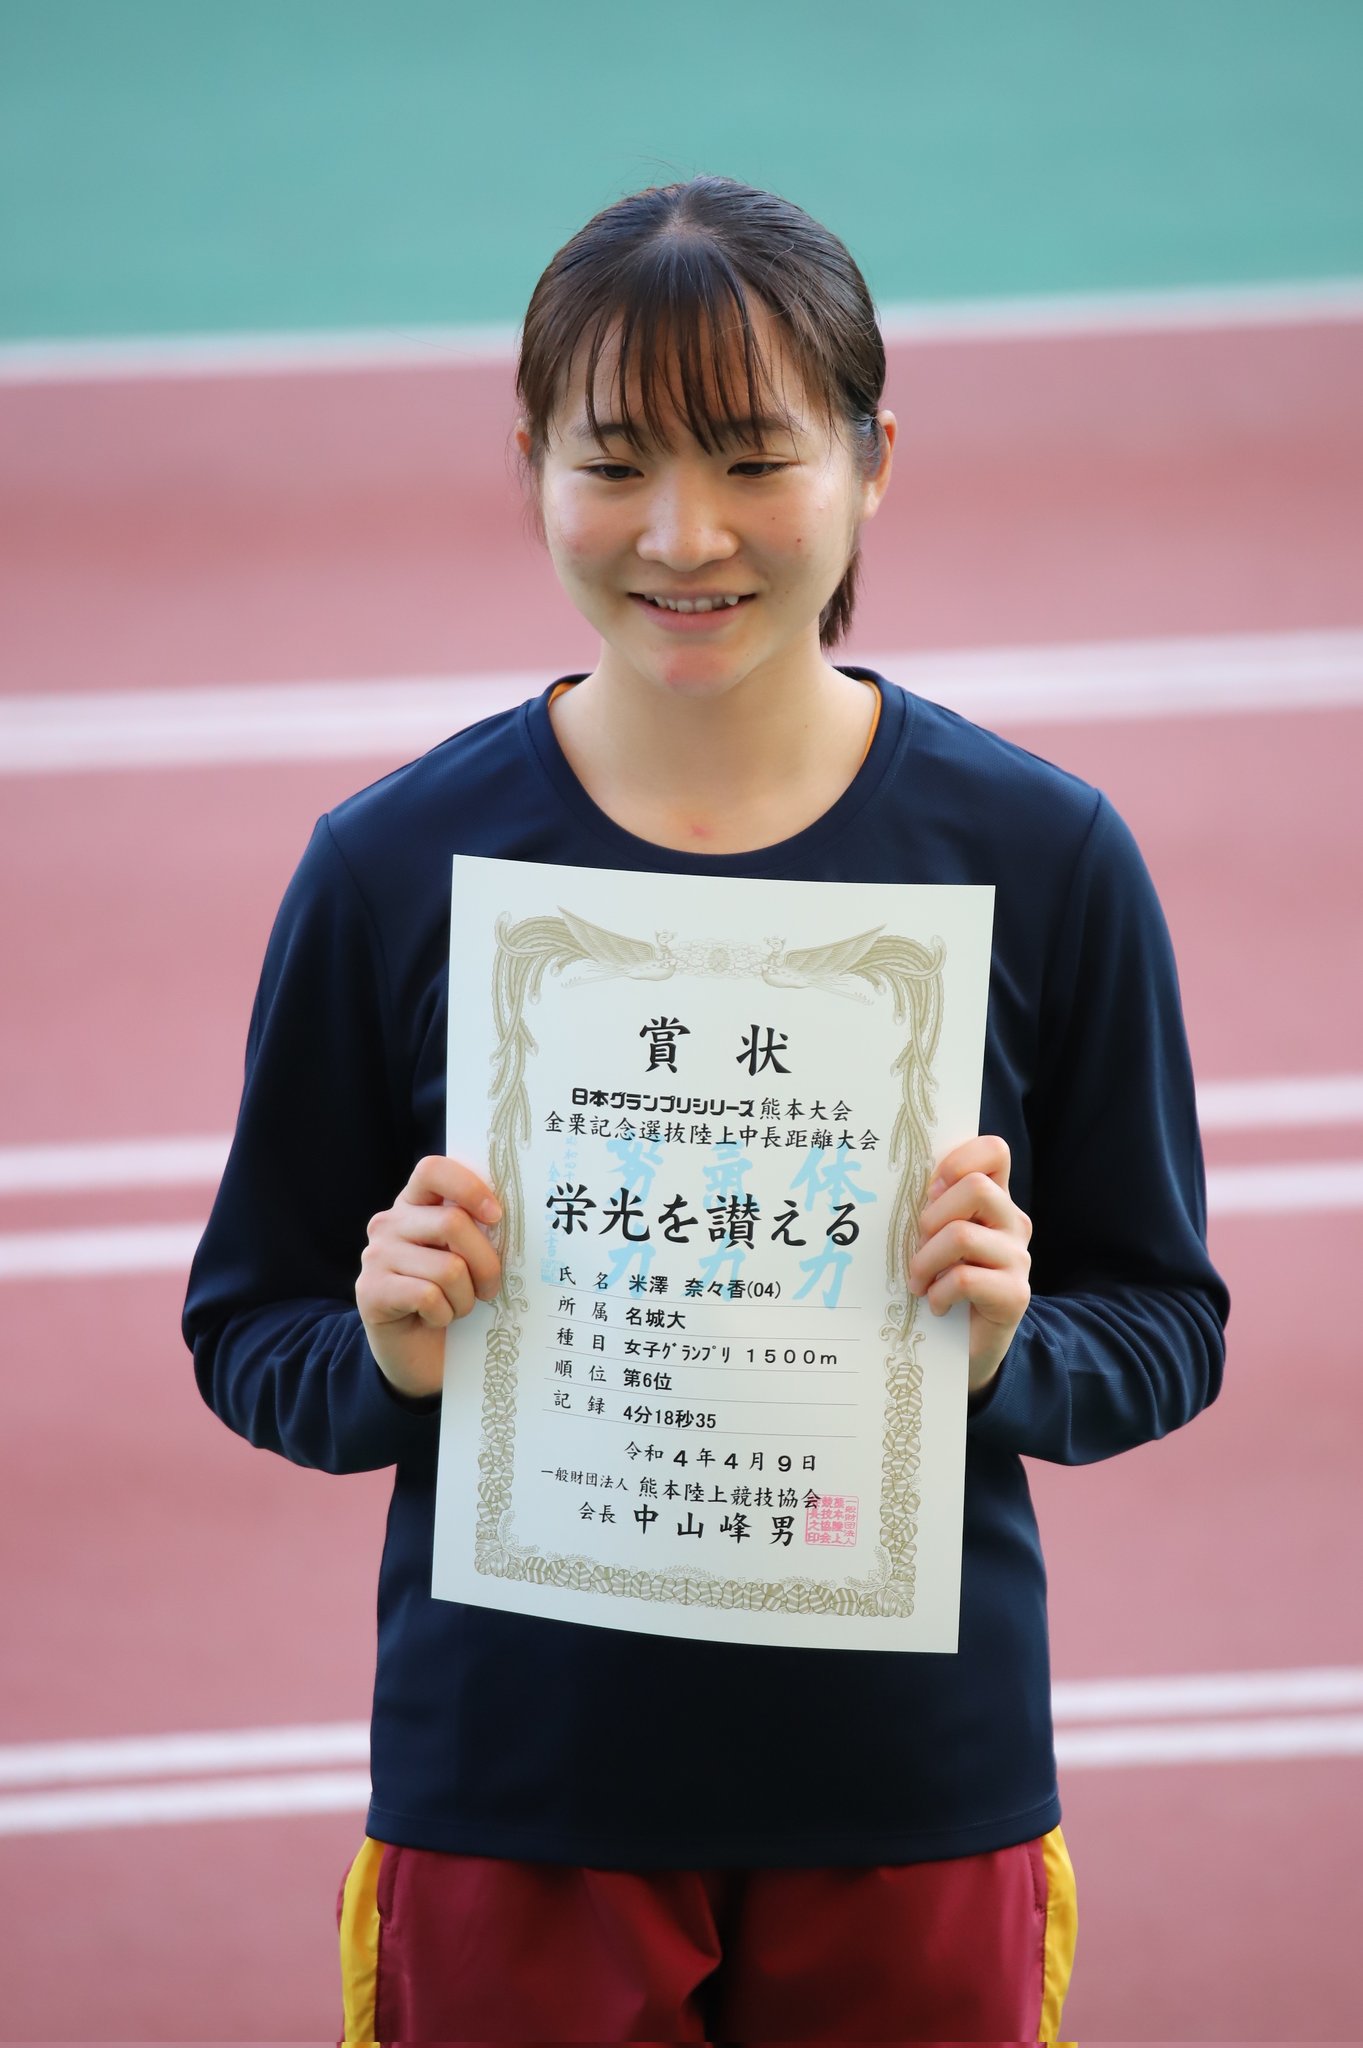 賞状
日本グランプリシリーズ 熊本大会
金栗記念選抜陸上中長距離大会
体力
氣力
努力
栄光を讃える
氏名 米澤 奈々香(04)
所属 名城大
種目 女子グランプリ 1500m
順位 第6位
記録 4分18秒35
令和4年4月9日
一般財団法人 熊本陸上競技協会
会長 中山峰男
一般財団法人
熊本陸上
競技協会
会長之印